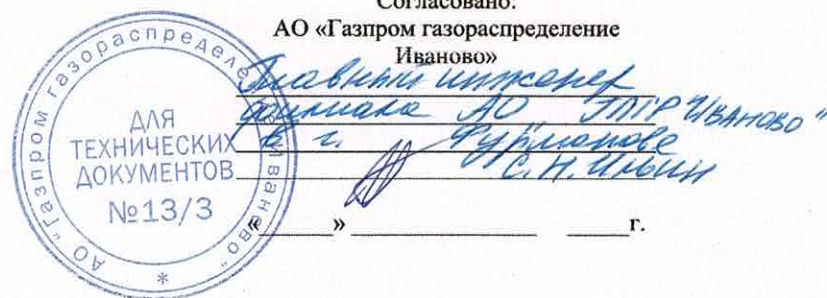 Согласовано:
АО «Газпром газораспределение
Иваново»
Главный инженер
филиала АО "ГПГР Иваново"
в г. Фурманове
С.Н. Ильин
«______» __________________ ______г.
АО "Газпром газораспределение Иваново"
*
ДЛЯ
ТЕХНИЧЕСКИХ
ДОКУМЕНТОВ
№13/3